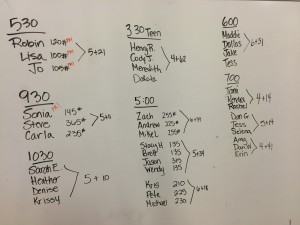 530
Robin 120#
Lisa 105#
Jo 105#
5+21
930
Sonia 145#
Steve 365#
Carla 235#
5+11
1030
Sarah E.
Heather
Denise
Krissy
5 + 10
330 Teen
Henry R.
Cody J.
Meredith
Dakota
4+62
5:00
Zach 255#
Andrew 325#
Mike L 255#
Stacy H 135
Brett 135
Jason 315
Wendy 135
5+24
Kris 210
Pete 225
Michael 230
6+18
600
Maddie
Dallas
Jake
Tess
6+31
700
Tom
Kendra
Rachel
4+14
Dan G
Jess
Selena
5+14
Amy
Dan W
Erin
4+1